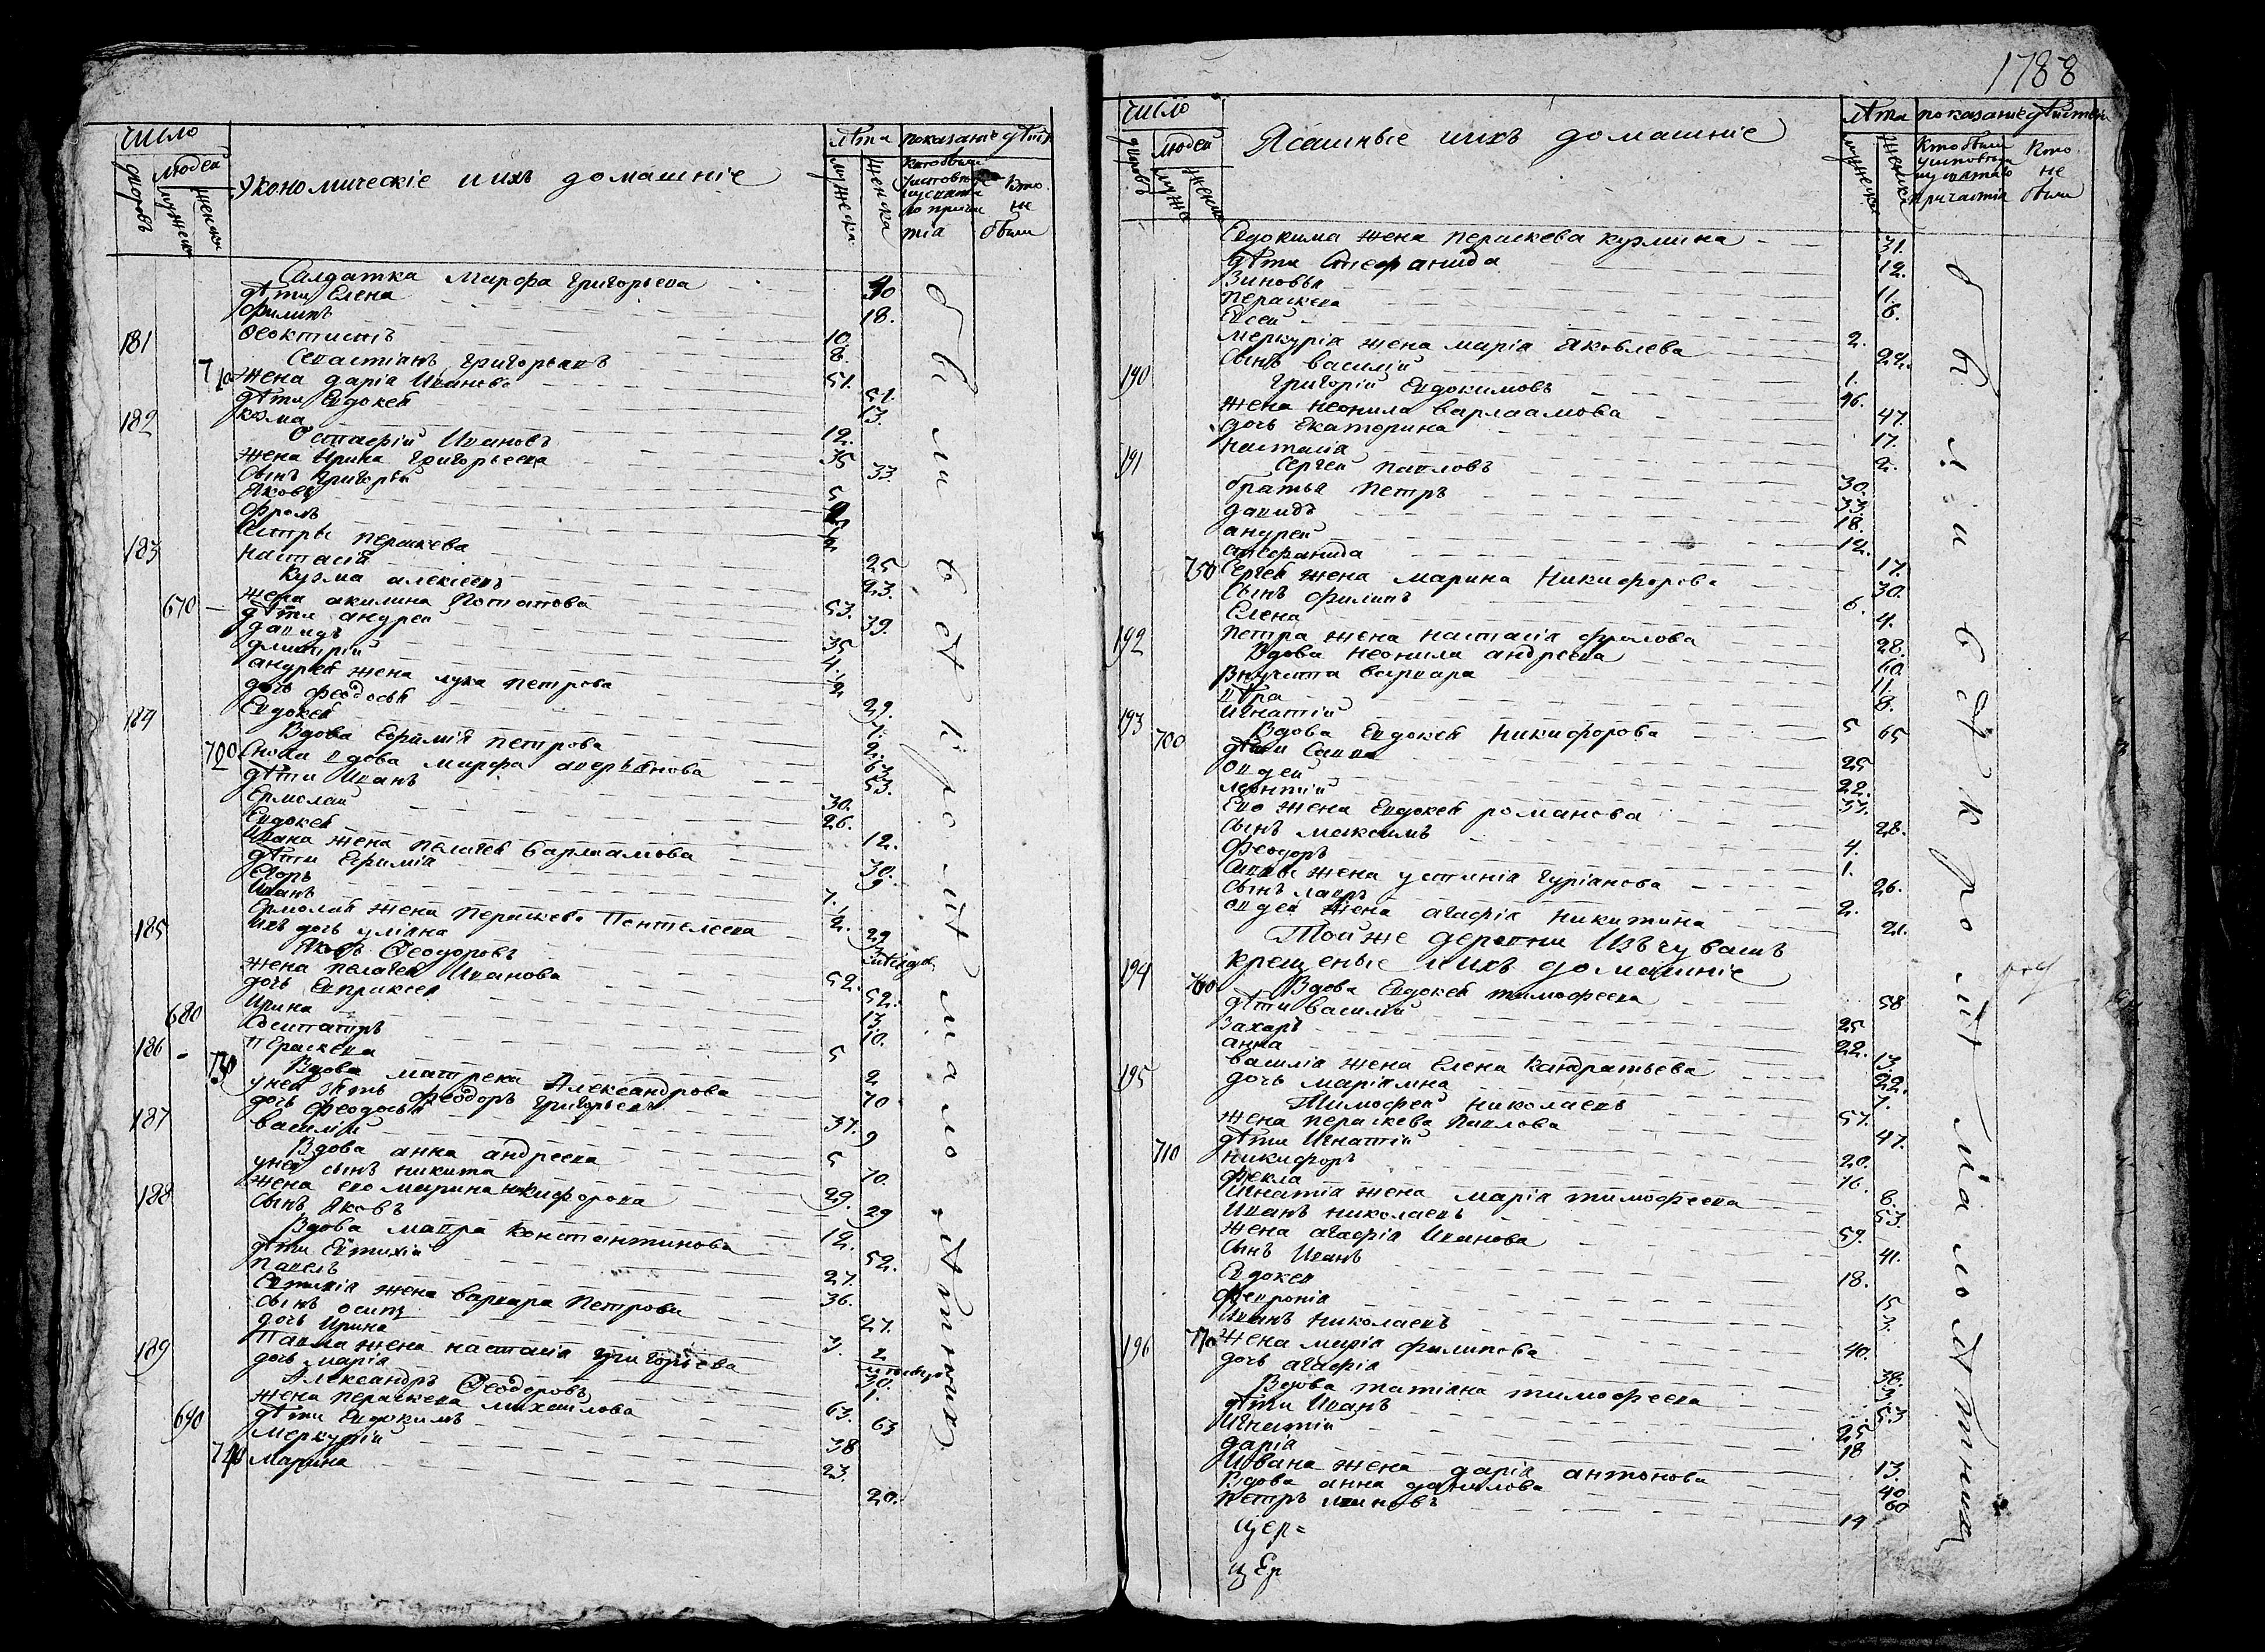 число
людей
дворовъ
мужеска
женска
Экономическіе и ихъ домашніе
лѣта
мужеска
женска
показаніе дѣйств
кто были у исповеди и у святаго причастія
кто не были
Салдатка Марфа Григорьева 40
дѣти Елена 18.
Филипъ 10.
Феоктистъ 8.
181 Севастіанъ Григорьевъ 51.
710 жена Дарія Иванова 51.
дѣти Евдокея 13.
Козма 12.
182 Остафій Ивановъ 35
жена Ирина Григорьева 33.
сынъ Григорей 5
Яковъ
Фролъ
сестры Пераскева 25
Настасія 23.
183 Кузма Алексеевъ 53.
жена Акилина Потапова 39.
670 дѣти Андрей 35
Давидъ 4.
Димитрій 2
Андрея жена Лукія Петрова 29.
дочь Феодосья 7.
Евдокея 2.
184 Вдова Ефимія Петрова 63.
720 Сноха вдова Марфа Аверьянова 53.
дѣти Иванъ 30.
Ермолай 26.
Евдокея 12.
Ивана жена Пелагея Варлаамова 30.
дѣти Ефимія 9
Егоръ 7.
Иванъ 2.
Ермолая жена Пераскева Пентелеева 29
ихъ дочь Уліяна
185 Яковъ Феодоровъ 52.
жена Пелагея Иванова 52.
дочь Евпраксея 13.
Ирина 10.
680 5
Пераскева 2
186 730 Вдова Матрена Александрова 70
у ней зять Феодоръ Григорьевъ 37.
дочь Феодосья 9
Василій 5
187 Вдова Анна Андреева 70.
у ней сынъ Никита 29.
жена его Марина Никифорова 29
сынъ Яковъ 12.
188 Вдова Мавра Константинова 52.
дѣти Евтихій 27.
Павелъ 36.
Евтихія жена Варвара Петрова 27.
сынъ Осипъ 3.
дочь Ирина 2
Павла жена Настасія Григорьева 30.
дочь Марія 1.
189 Александръ Феодоровъ 63.
жена Пераскева Михайлова 63
690 дѣти Евдокимъ 38
Меркурій 23.
740 Марина 20.
О в ы и с е й к р о м ѣ м а л о лѣтнихъ
1788
число
людей
дворовъ
мужеска
женска
Ясашные и ихъ домашніе
лѣта
мужеска
женска
показаніе дѣйствъ
кто были у исповеди и у святаго причастія
кто не были
Евдокима жена Пераскева Кузмина 31.
дѣти Стефанида 12.
Зиновья 11.
Пераскева 6.
Евсей 2.
Меркурія жена Марія Яковлева 22.
сынъ Василій 1.
190 Григорій Евдокимовъ 46.
жена Неонила Варлаамова 47.
дочь Екатерина 17.
Настасія 2.
191 Сергей Павловъ 30.
братья Петръ 33.
Давидъ 18.
Андрей 12.
Стефанида 17.
750 Сергея жена Марина Никифорова 30.
сынъ Филипъ 6.
Елена 4.
Петра жена Настасія Фролова 28.
192 Вдова Неонила Андреева 60.
внучата Варвара 11.
8.
Игнатій 5
193 Вдова Евдокея Никифорова 65
700 дѣти Савва 25
Авдей 22.
Леонтій 33.
Его жена Евдокея Романова 28.
сынъ Максимъ 4.
Феодоръ 1.
Саввы жена Устинія Гуріанова 26.
сынъ Лавръ 2.
Авдея жена Агафія Никитина 21.
Той же деревни Изъ чувашъ
крещеные и ихъ домашніе
194 760 Вдова Евдокея Тимофеева 58
дѣти Василій 25
Захаръ 22.
Анна 13.
Василія жена Елена Кандратьева 22.
дочь Маріямна 7.
195 Тимофей Николаевъ 57.
жена Пераскева Павлова 47.
дѣти Игнатій 20.
710 Никифоръ 16.
Фекла 8.
Игнатія жена Марія Тимофеева 53.
Иванъ Николаевъ 59.
жена Агафія Иванова 41.
сынъ Иванъ 18.
Евдокея 15
Февронія
Иванъ Николаевъ 40.
770 жена Марія Филипова 38.
дочь Агафія 3.
196 Вдова Татіана Тимофеева 53
дѣти Иванъ 25
Игнатій 18
Дарія 13.
Ивана жена Дарія Антонова 40
Вдова Анна Данилова 60
Петръ 14
Цер=
цЕр